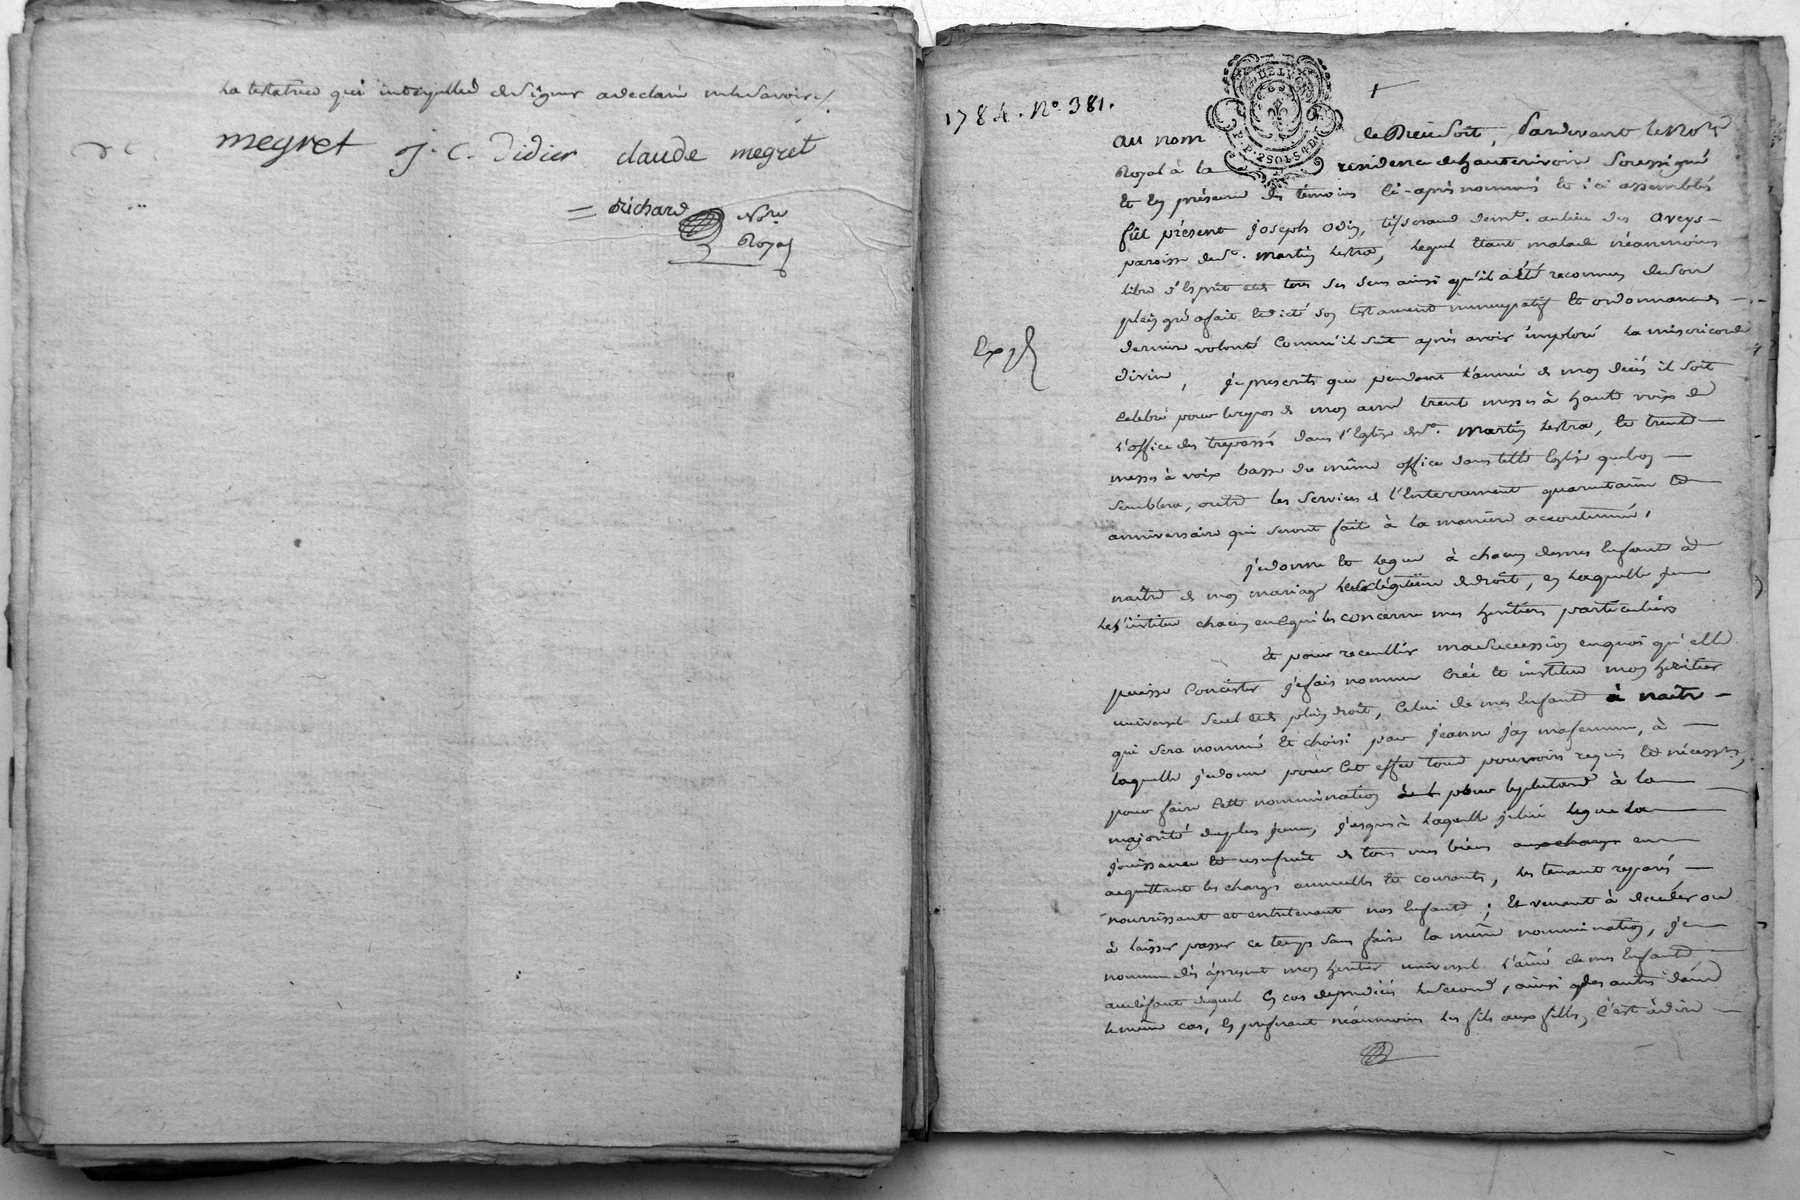 La testatrice qui interpellée de signer a declaré ne le savoir /.
megret j. C. Didier claude megret
= Richard Nore
Royal
1784. N° 381.
G. HELVG
P. P. 2SOLS4D.
au nom de Dieu soit, Pardevant le Nore
Royal à la residence de hauterivoire soussigné
Et En présence des témoins ci-après nommés et ici assemblés
fut présent joseph Odin, tisserand demt. au lieu des aveys
paroisse de St. Martin Lestra, lequel Etant malade néanmoins
libre d'Esprit et de tous ses sens ainsi qu'il a été reconnu, de son
plein gré a fait et dicté son testament nuncupatif Et ordonnance de
derniere volonté Comme il suit après avoir imploré la misericorde
Expé
divine, je prescrits que pendant l'année de mon décès il soit
celebré pour le repos de mon ame trente messes à haute voix de
l'office des trepassés dans l'Eglise de St. Martin Lestra, et trente
messes à voix basse du même office dans telle Eglise que bon
semblera, outre les services de l'Enterrement quarantaine et
anniversaire qui seront fait à la maniere accoutumée,
je donne et legue à chacun de mes Enfants à
naitre de mon mariage légitime de droit, en laquelle je
les institue chacun en ce qui les concerne mes heritiers particuliers
Et pour recueillir ma succession en quoi qu'elle
puisse Concister je fais nomme Créé et institue mon heritier
universel seul et de plein droit, Celui de mes Enfants à naitre
qui sera nommé Et choisi par jeanne jay ma femme, à
laquelle je donne pour Cet effet tous pouvoirs requis et nécessres,
pour faire Cette nomination pour le plutard à la
majorité du plus jeune, jusques à laquelle je lui legue la
jouissance et usufruit de tous mes biens en
acquittant les charges annuelles et courantes, les tenant reparés
nourrissant et entretenant nos Enfants; Et venant à deceder ou
à laisser passer ce temps sans faire la même nomination, je
nomme dès àpresent mon heritier universel l'ainé de mes Enfants
au defaut duquel En cas de predécès le second, ainsi des autres dans
le même cas, En preferant néanmoins les fils aux filles, C'est à dire